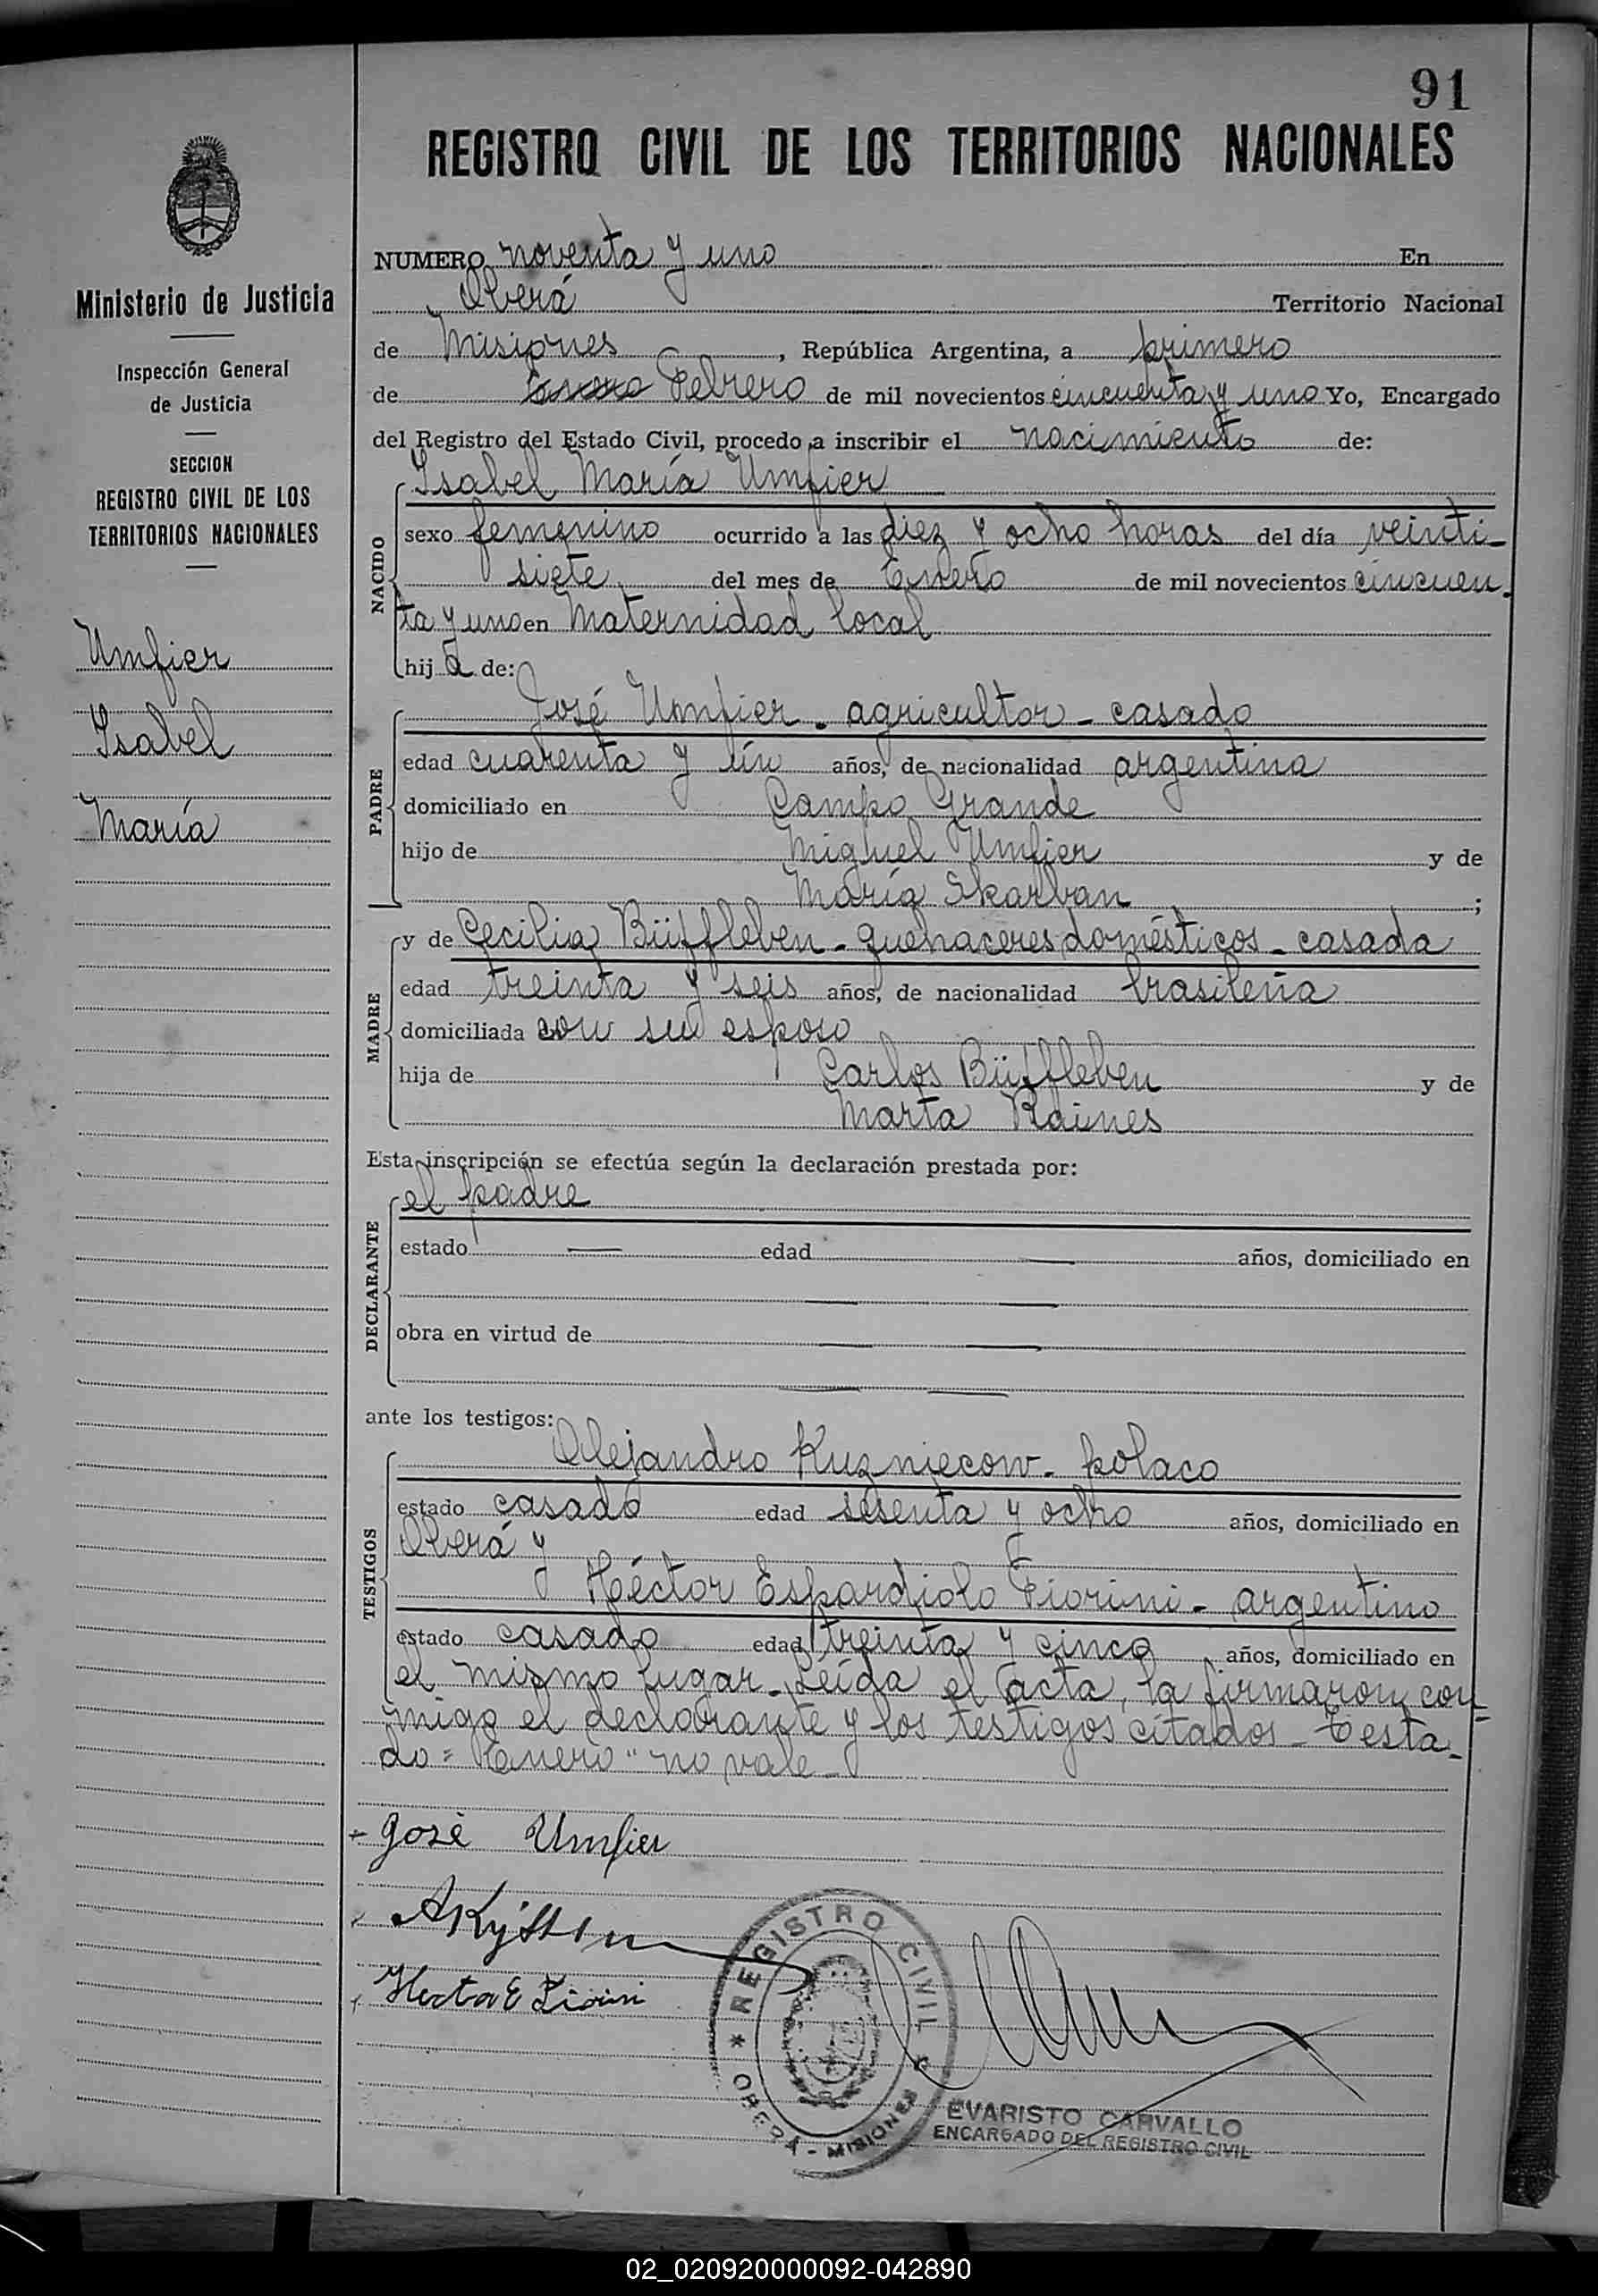 91
REGISTRO CIVIL DE LOS TERRITORIOS NACIONALES
Ministerio de Justicia
Inspección General
de Justicia
SECCION
REGISTRO CIVIL DE LOS
TERRITORIOS NACIONALES
Umfier
Isabel
María
NUMERO noventa y uno En
Oberá Territorio Nacional
de Misiones, República Argentina, a primero
de Enero Febrero de mil novecientos cincuenta y uno Yo, Encargado
del Registro del Estado Civil, procedo a inscribir el nacimiento de:
NACIDO
Isabel María Umfier
sexo femenino ocurrido a las diez y ocho horas del día veinti-
siete del mes de Enero de mil novecientos cincuen-
ta y uno en Maternidad local
hija de:
PADRE
José Umfier - agricultor - casado
edad cuarenta y ún años, de nacionalidad argentina
domiciliado en Campo Grande
hijo de Miguel Umfier y de
María Skarban;
MADRE
y de Cecilia Büffleben - quehaceres domésticos - casada
edad treinta y seis años, de nacionalidad brasileña
domiciliada con su esposo
hija de Carlos Büffleben y de
Marta Raines
Esta inscripción se efectúa según la declaración prestada por:
DECLARANTE
el padre
estado — edad — años, domiciliado en
— —
obra en virtud de — —
— —
ante los testigos:
TESTIGOS
Alejandro Kuzniecow - polaco
estado casado edad sesenta y ocho años, domiciliado en
Oberá y
Héctor Espardiolo Fiorini - argentino
estado casado edad treinta y cinco años, domiciliado en
el mismo lugar - Leída el acta, la firmaron con-
migo el declarante y los testigos citados - Testa-
do = "Enero" no vale -
José Umfier
Hector E Fiorini
REGISTRO CIVIL
OBERÁ - MISIONES
EVARISTO CARVALLO
ENCARGADO DEL REGISTRO CIVIL
02_020920000092-042890